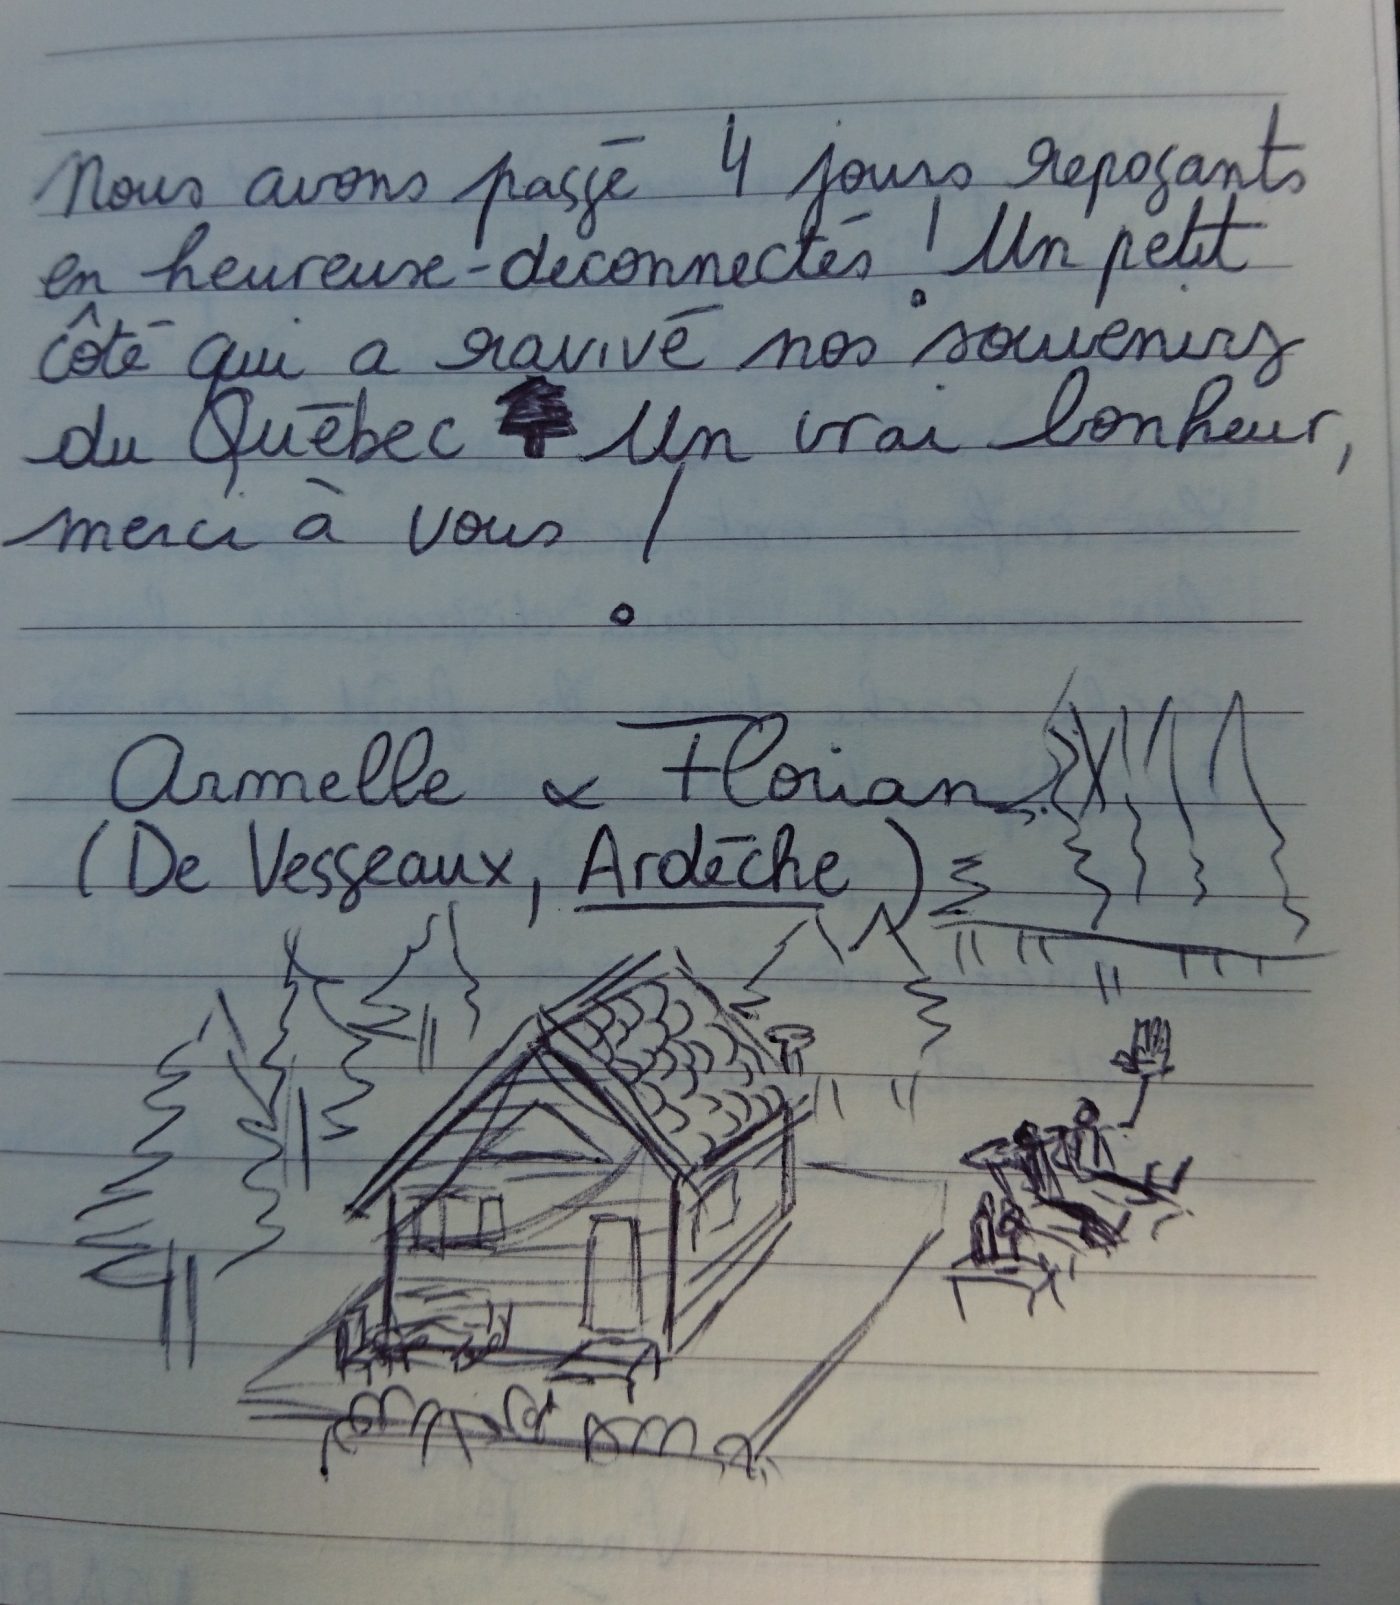 Nous avons passé 4 jours reposants
en heureux-deconnectés ! Un petit
côté qui a ravivé nos souvenirs
du Québec Un vrai bonheur,
merci à vous !
Armelle & Florian
(De Vesseaux, Ardèche)